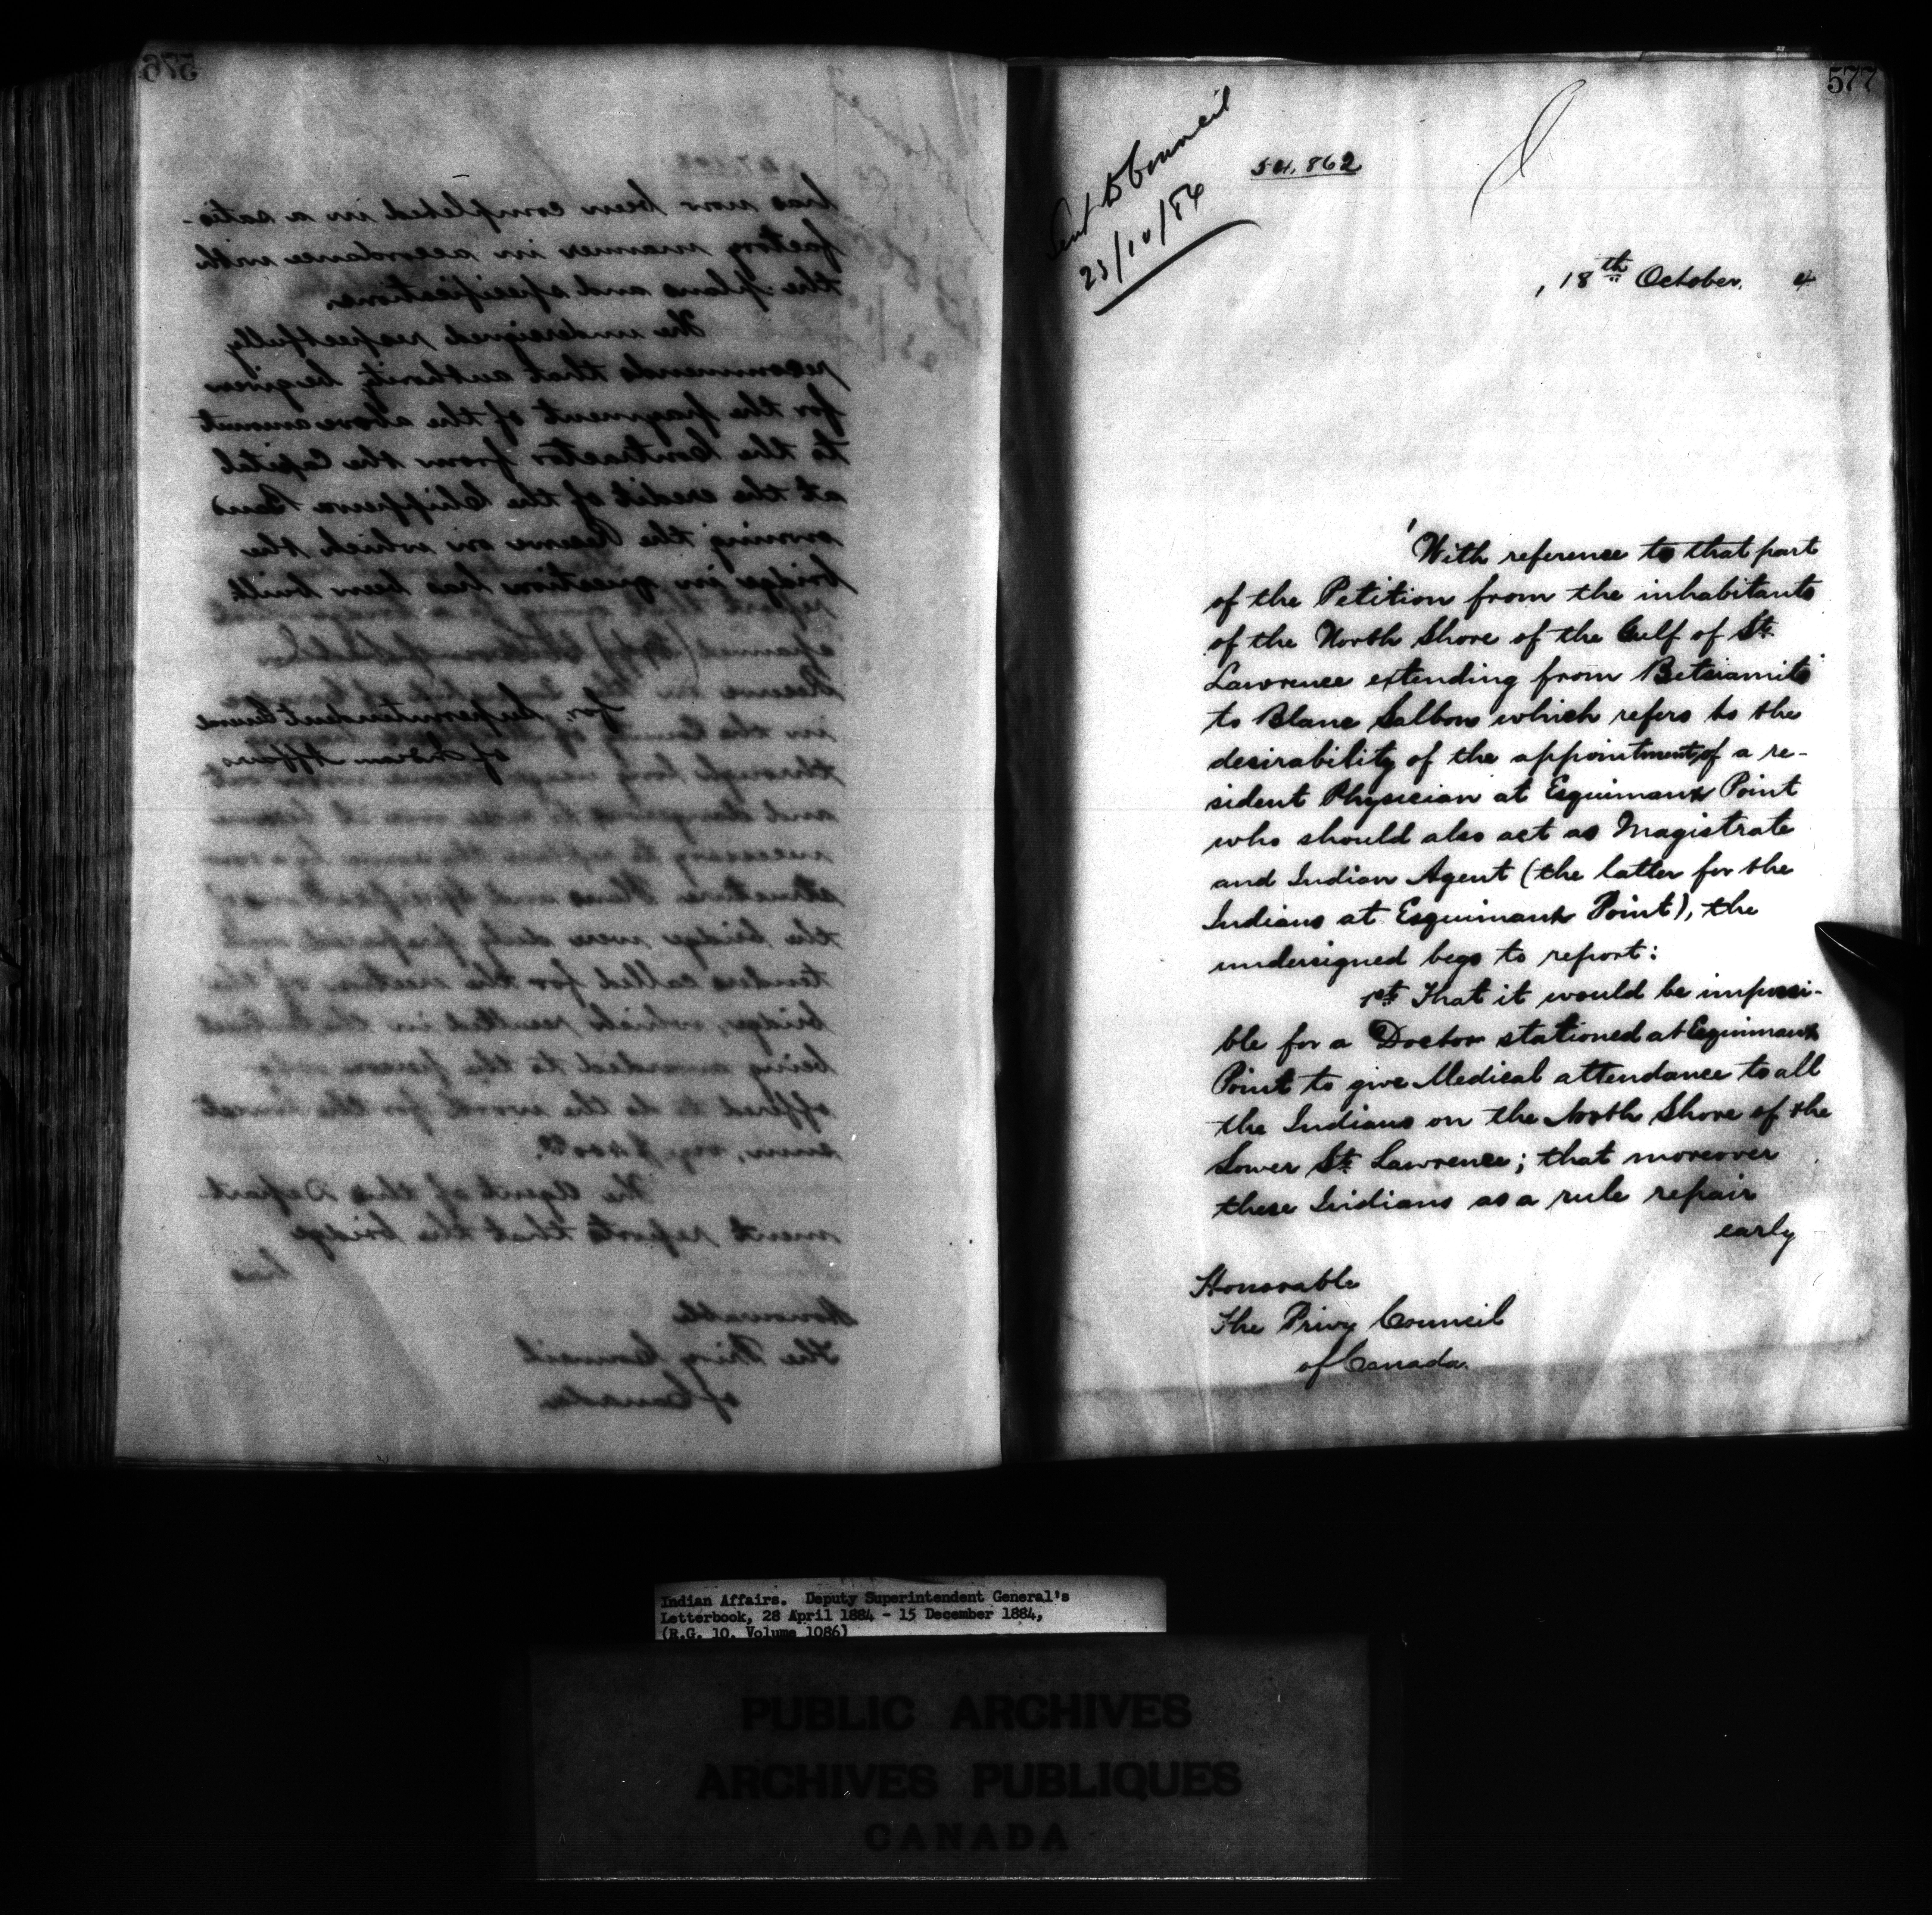 576
has now been completed in a satis-
factory manner in accordance with
the plans and specifications.
The undersigned respectfully
recommends that authority be given
for the payment of the above amount
to the Contractor from the Capital
at the credit of the Chippewa Band
owning the Reserve on which the
bridge in question has been built
for Superintendent General
of Indian Affairs
and dangerous
necessary to replace the same by a new
structure. Plans and Specifications of
the bridge were duly prepared and
tenders called for the erection of the
bridge, which resulted in the Contract
being awarded to the person who
offered to do the work for the lowest
sum,
The Agent of this Depart-
ment reports that the bridge
has
Honorable
The Privy Council
of Canada
577
Sent to Council
23/10/84
54,862
18th October. 4
With reference to that part
of the Petition from the inhabitants
of the North Shore of the Gulf of St.
Lawrence extending from Betsiamits
to Blanc Salbon which refers to the
desirability of the appointment of a re-
sident Physician at Esquimaux Point
who should also act as Magistrate
and Indian Agent (the latter for the
Indians at Esquimaux Point), the
undersigned begs to report:
1st. That it would be impossi-
ble for a Doctor stationed at Esquimaux
Point to give Medical attendance to all
the Indians on the North Shore of the
Lower St. Lawrence; that moreover
these Indians as a rule repair
early
Honorable
The Privy Council
of Canada.
Indian Affairs. Deputy Superintendent General's
Letterbook, 28 April 1884 - 15 December 1884,
(R.G. 10, Volume 1086)
PUBLIC ARCHIVES
ARCHIVES PUBLIQUES
CANADA